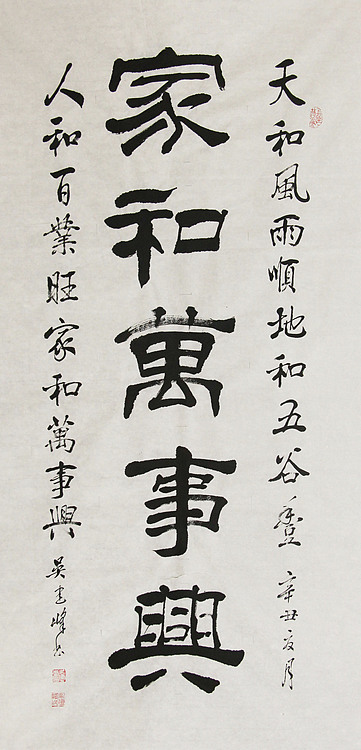 天和風雨順地和五谷豐 辛丑夏月
家和萬事興
人和百業旺家和萬事興 吴建峰书